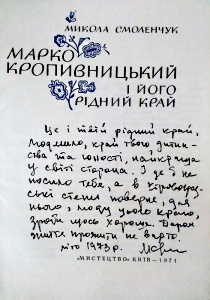 МИКОЛА СМОЛЕНЧУК
МАРКО
КРОПИВНИЦЬКИЙ
І ЙОГО
РІДНИЙ КРАЙ
Це і твій рідний край,
Людмило, край твого дитин-
ства та юності, найкраща
у світі сторона. І де б не
носило тебе, а в кіровоград-
ські степи поверне, для
нього, люду цього краю,
зроби щось хороше. Даром
життя прожити не варто.
літо 1973 р.
«МИСТЕЦТВО» КИЇВ — 1971